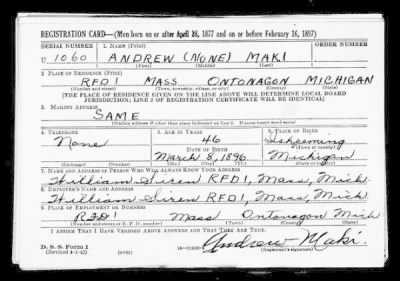 REGISTRATION CARD—(Men born on or after April 28, 1877 and on or before February 16, 1897)
SERIAL NUMBER 1. NAME (Print) ORDER NUMBER
U 1060 ANDREW (NONE) MAKI
(First) (Middle) (Last)
2. PLACE OF RESIDENCE (Print)
RFD1 MASS ONTONAGON MICHIGAN
(Number and street) (Town, township, village, or city) (County) (State)
[THE PLACE OF RESIDENCE GIVEN ON THE LINE ABOVE WILL DETERMINE LOCAL BOARD
JURISDICTION; LINE 2 OF REGISTRATION CERTIFICATE WILL BE IDENTICAL]
3. MAILING ADDRESS
SAME
[Mailing address if other than place indicated on line 2. If same insert word same]
4. TELEPHONE 5. AGE IN YEARS 6. PLACE OF BIRTH
None 46 Ishpeming
DATE OF BIRTH (Town or county)
March 8, 1896 Michigan
(Exchange) (Number) (Mo.) (Day) (Yr.) (State or country)
7. NAME AND ADDRESS OF PERSON WHO WILL ALWAYS KNOW YOUR ADDRESS
William Siren RFD1, Mass, Mich
8. EMPLOYER'S NAME AND ADDRESS
William Siren RFD1, Mass, Mich.
9. PLACE OF EMPLOYMENT OR BUSINESS
RFD1 Mass Ontonagon Mich
(Number and street or R. F. D. number) (Town) (County) (State)
I AFFIRM THAT I HAVE VERIFIED ABOVE ANSWERS AND THAT THEY ARE TRUE.
D. S. S. Form 1
(Revised 4-1-42) (over) Andrew Maki.
(Registrant's signature)